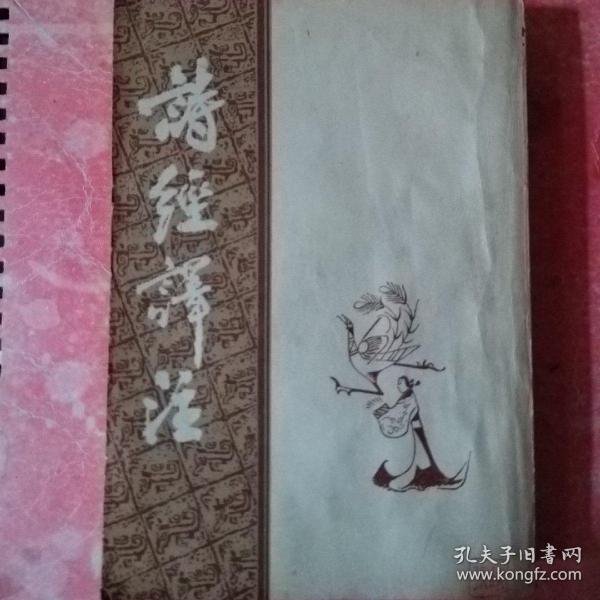 詩經譯注
孔夫子旧書网
www.kongfz.com